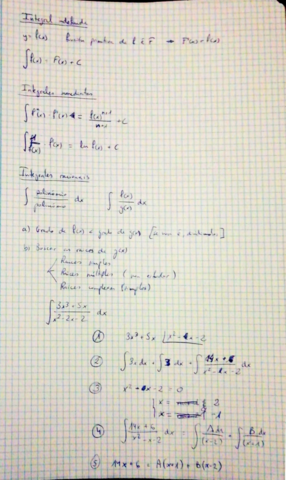 Integral indefinida
y = f(x) Función primitiva de f è F → F'(x) = f(x)
∫f(x) = F(x) + C
Integrales inmediatas
∫fⁿ(x) · f'(x) = f(x)ⁿ⁺¹/n+1 + C
∫f'(x)/f(x) = ln f(x) + C
Integrales racionales
∫ polinomio/polinomio dx ∫ f(x)/g(x) dx
a) Grado de f(x) ≥ grado de g(x)
b) Sacar las raíces de g(x)
Raíces simples
Raíces múltiples
Raíces complejas (simples)
∫ 3x³+5x/x²-x-2 dx
① 3x³+5x | x²-x-2
② ∫3x dx + ∫3 dx + ∫ 14x+6/x²-x-2 dx
③ x²-x-2 = 0
x = 2
x = -1
④ ∫ 14x+6/x²-x-2 dx = ∫ A dx/(x-2) + ∫ B dx/(x+1)
⑤ 14x+6 = A(x+1) + B(x-2)